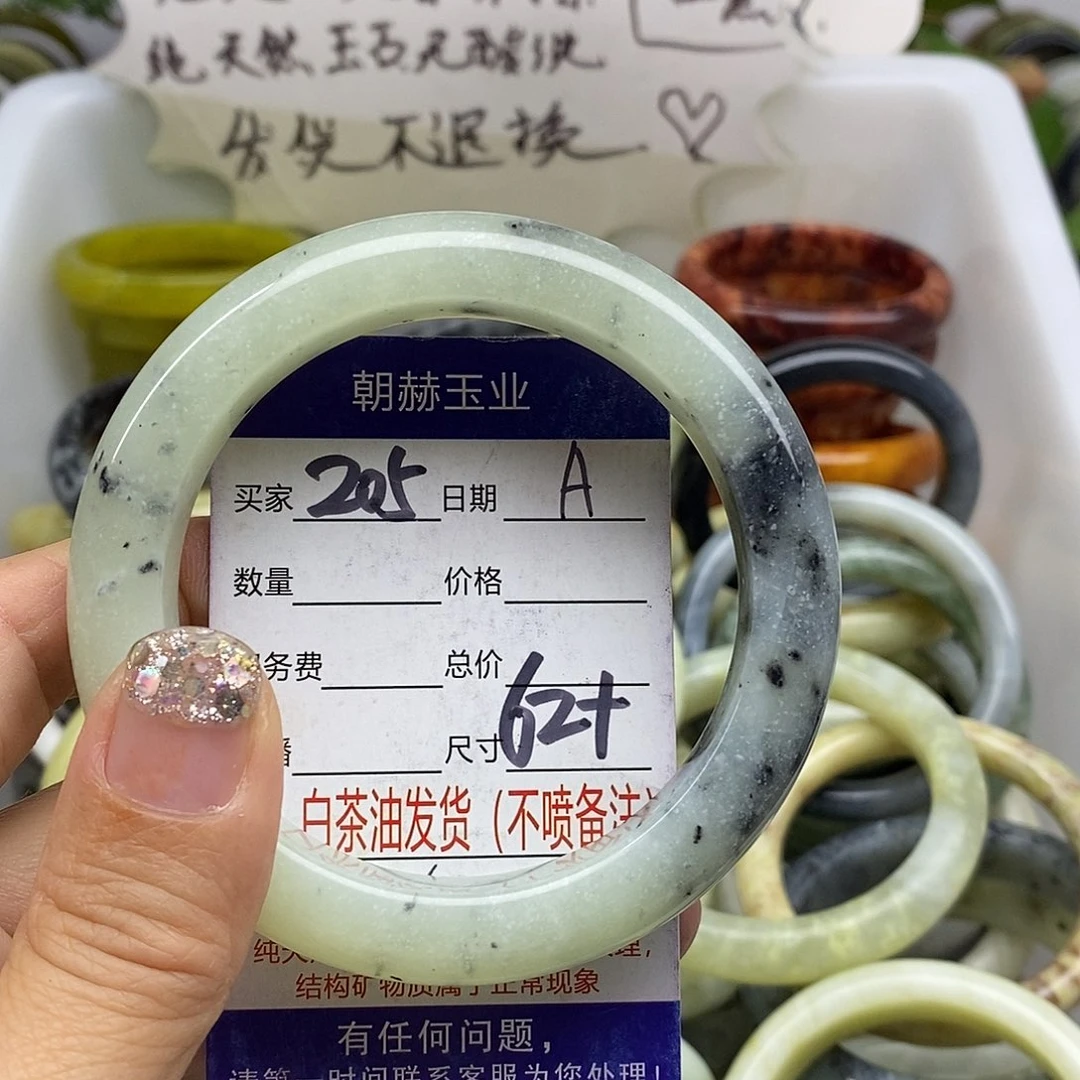 纯天然玉石无酸洗
发货不退换
朝赫玉业
买家 205 日期 A
数量 价格
务费 总价
尺寸 62+
白茶油发货（不喷备注）
结构矿物质属于正常现象
有任何问题，
请第一时间联系客服为您处理！